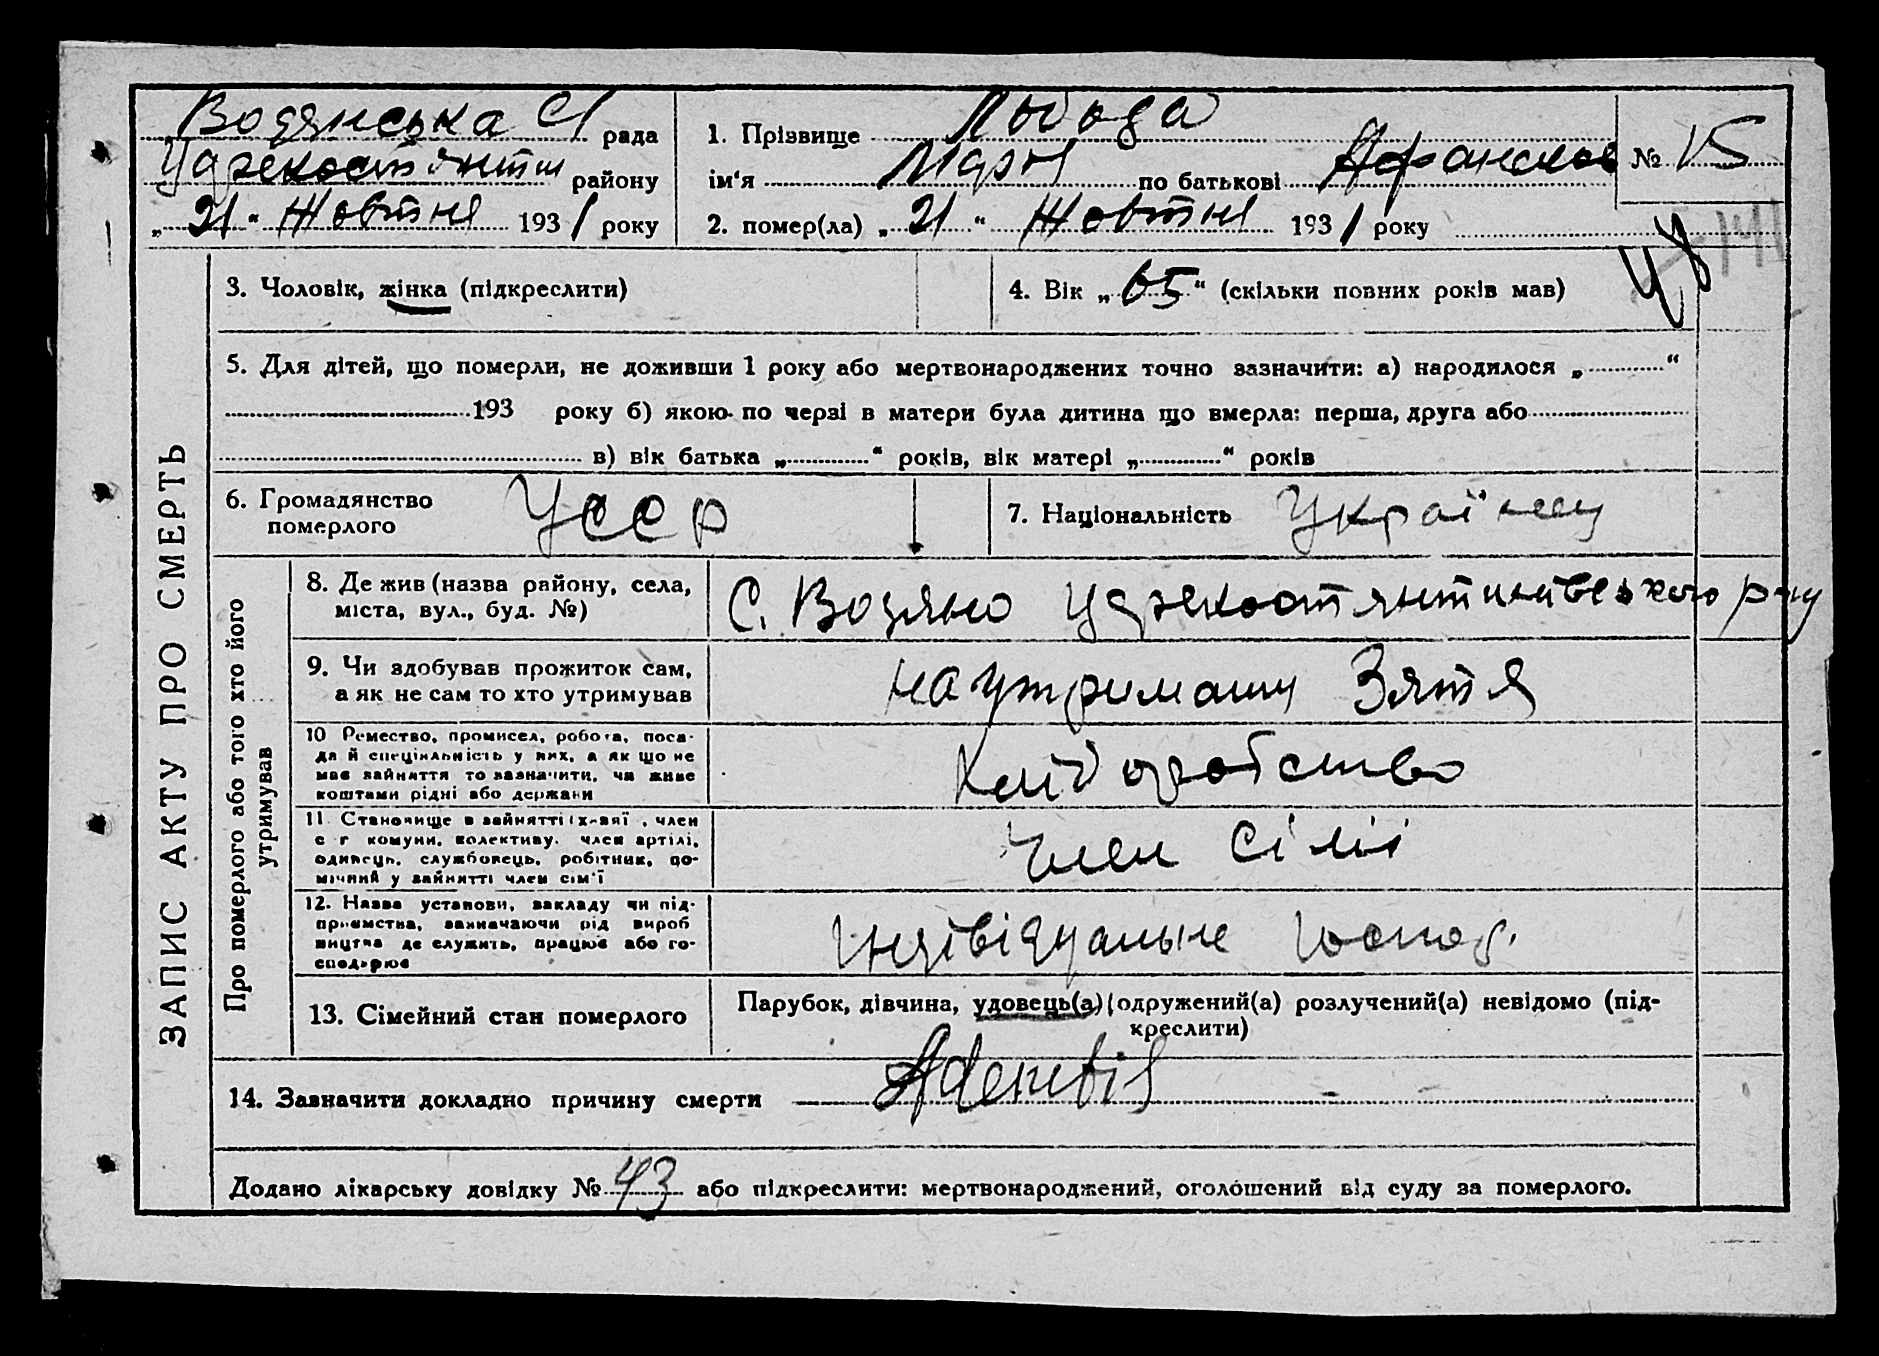 Водянська С/ рада
району
„ 21 “ Жовтня 1931 року
1. Прізвище Лобода
ім‘я Марія по батькові
2. помер(ла) „ 21 “ Жовтня 1931 року
№ 15
141
3. Чоловік, жінка (підкреслити)
4. Вік „ 65 “ (скільки повних років мав)
5. Для дітей, що померли, не доживши 1 року або мертвонароджених точно зазначити: а) народилося „ “
193 року б) якою по черзі в матери була дитина що вмерла: перша, друга або
в) вік батька „ “ років, вік матері „ “ років
6. Громадянство
померлого
УССР
7. Національність
ЗАПИС АКТУ ПРО СМЕРТЬ
Про померлого або того хто його
утримував
8. Де жив (назва району, села,
міста, вул., буд. №)
С. Водяно
9. Чи здобував прожиток сам,
а як не сам то хто утримував
на утриманні Зятя
10 Ремество, промисел, робота, поса-
да й спеціяльність у них, а як що не
має зайняття то зазначити, чи живе
коштами рідні або держави
Хліборобство
11. Становище в зайнятті , член
с г комуни, колективу, член артілі,
одинець, службовець, робітник, до-
мічний у зайнятті член сім‘ї
член сімї
12. Назва установи, закладу чи під-
приємства, зазначаючи рід вироб
ництва де служить, працює або го-
сподарює
Индівідуальне господ.
13. Сімейний стан померлого
Парубок, дівчина, удовець(а) (одружений(а) розлучений(а) невідомо (під-
креслити)
14. Зазначити докладно причину смерти
Додано лікарську довідку № 43 або підкреслити: мертвонароджений, оголошений від суду за померлого.